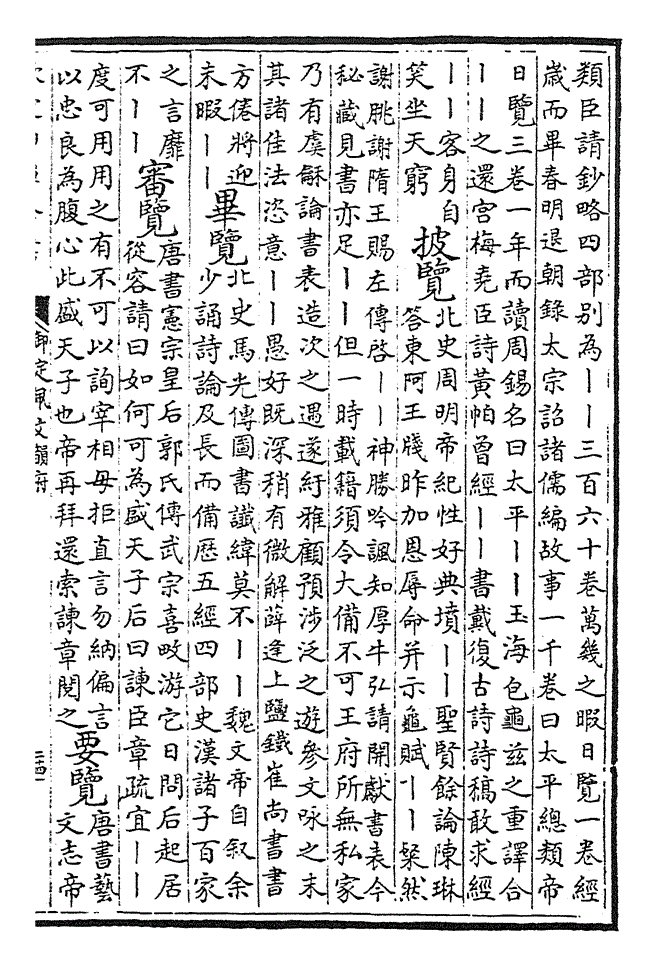 類臣請鈔略四部別為丨丨三百六十卷萬幾之暇日覽一卷經
歲而畢春明退朝錄太宗詔諸儒編故事一千卷曰太平總類帝
日覽三卷一年而讀周錫名曰太平丨丨玉海包龜茲之重譯合
丨丨之還宮梅堯臣詩黃帕曾經丨丨書戴復古詩詩稿敢求經
丨丨客身自
笑坐天窮
披覽
北史周明帝紀性好典墳丨丨聖賢餘論陳琳
答東阿王牋昨加恩辱命并示龜賦丨丨粲然
謝朓謝隋王賜左傳啓丨丨神勝吟諷知厚牛弘請開獻書表今
秘藏見書亦足丨丨但一時載籍須令大備不可王府所無私家
乃有虞龢論書表造次之遇遂紆雅顧預涉泛之遊參文咏之末
其諸佳法恣意丨丨愚好既深稍有微解薛逢上鹽鐵崔尚書書
方倦將迎
未暇丨丨
畢覽
北史馬光傳圖書讖緯莫不丨丨魏文帝自叙余
少誦詩論及長而備歷五經四部史漢諸子百家
之言靡
不丨丨
審覽
唐書憲宗皇后郭氏傳武宗喜畋游它日問后起居
從容請曰如何可為盛天子后曰諫臣章疏宜丨丨
度可用用之有不可以詢宰相毋拒直言勿納偏言
以忠良為腹心此盛天子也帝再拜還索諫章閱之
要覽
唐書藝
文志帝
御定佩文韻府